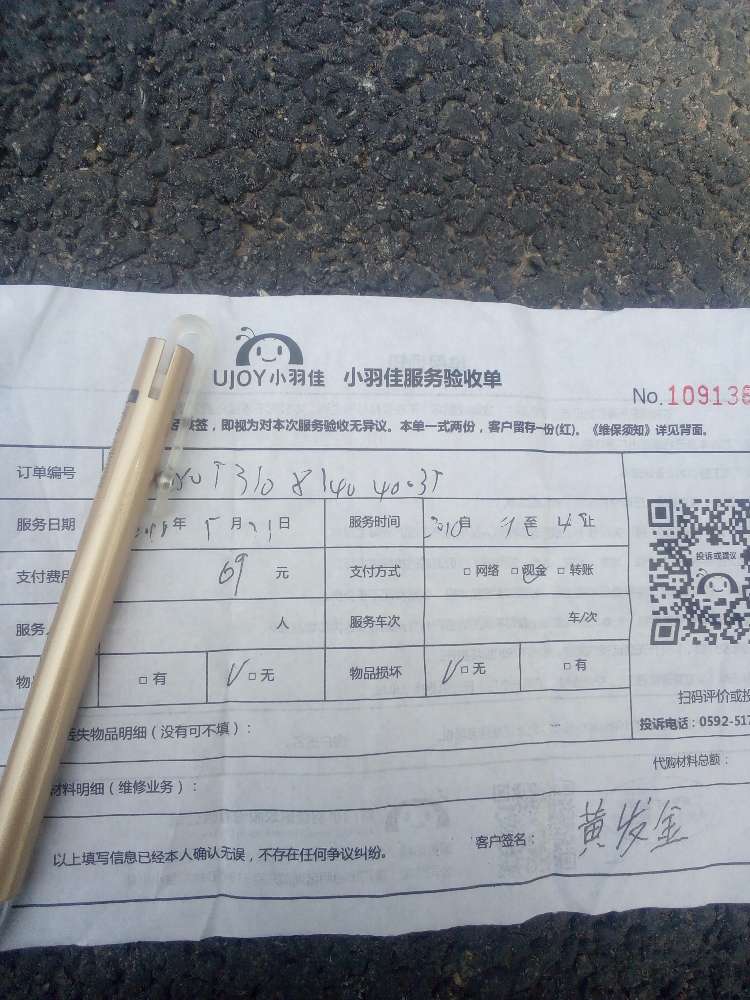 UJOY小羽佳 小羽佳服务验收单
No. 109138
签，即视为对本次服务验收无异议。本单一式两份，客户留存一份(红)。《维保须知》详见背面。
订单编号
服务日期 年 5月31日 服务时间 自 至 止
支付费用 69 元 支付方式 □网络 □现金 □转账
服务 人 服务车次 车/次
物 □有 □无 物品损坏 □无 □有
投诉或建议
扫码评价或投
投诉电话：0592-517
丢失物品明细（没有可不填）：
代购材料总额：
材料明细（维修业务）：
以上填写信息已经本人确认无误，不存在任何争议纠纷。 客户签名： 黄发金